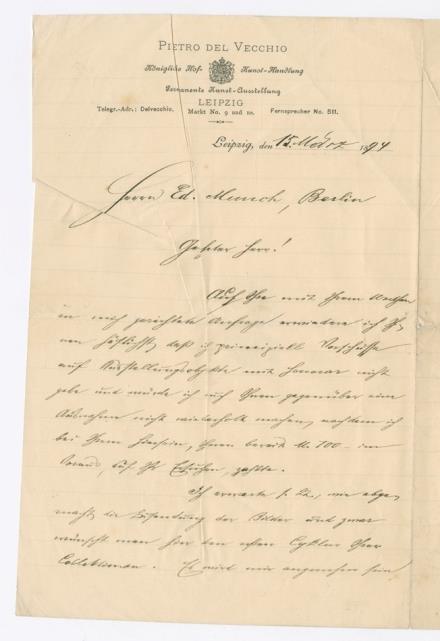 PIETRO DEL VECCHIO
Königliche Hof- Kunst-Handlung
Permanente Kunst-Ausstellung
LEIPZIG
Telegr.-Adr.: Delvecchio. Markt No. 9 und 10. Fernsprecher No. 511.
Leipzig, den 15. März 1894
Herrn Ed. Munch, Berlin
Geehrter Herr!
Auf Ihre mit Ihrem
an mich gerichtete Anfrage erwidere ich
nen höflichst, daß ich prinzipiell Vorschüsse
auf Ausstellungsobjekte mit Honorar nicht
gebe und würde ich auch Ihnen gegenüber eine
Ausnahme nicht wiederholt machen, nachdem ich
bei Ihrem Hiersein, Ihnen bereits M. 100 – im
Voraus, auf Ihr Ersuchen, zahlte.
Ich erwarte wie abge
macht, die Zusendung der Bilder und zwar
wünscht man hier den ersten Cyklus Ihrer
Collektionen. Es wird mir angenehm sein